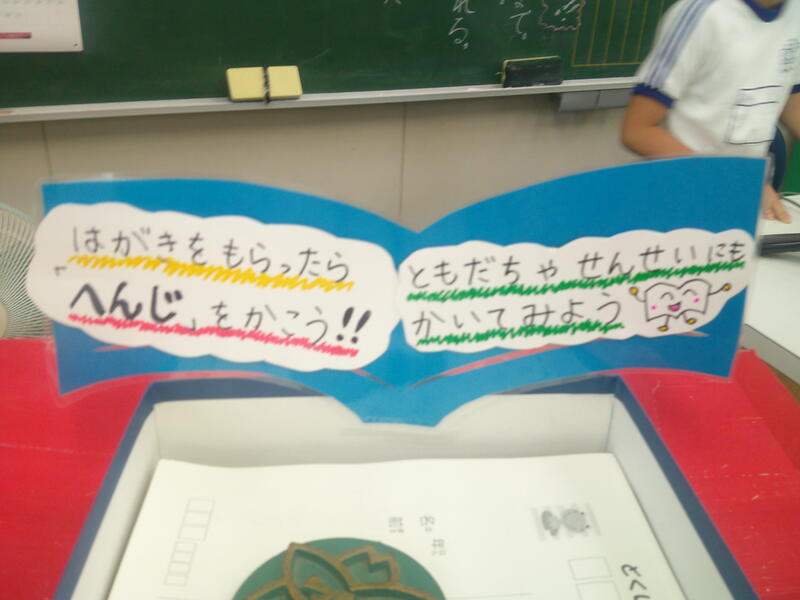 はがきをもらったら
「へんじ」をかこう!!
ともだちゃせんせいにも
かいてみよう
れる。